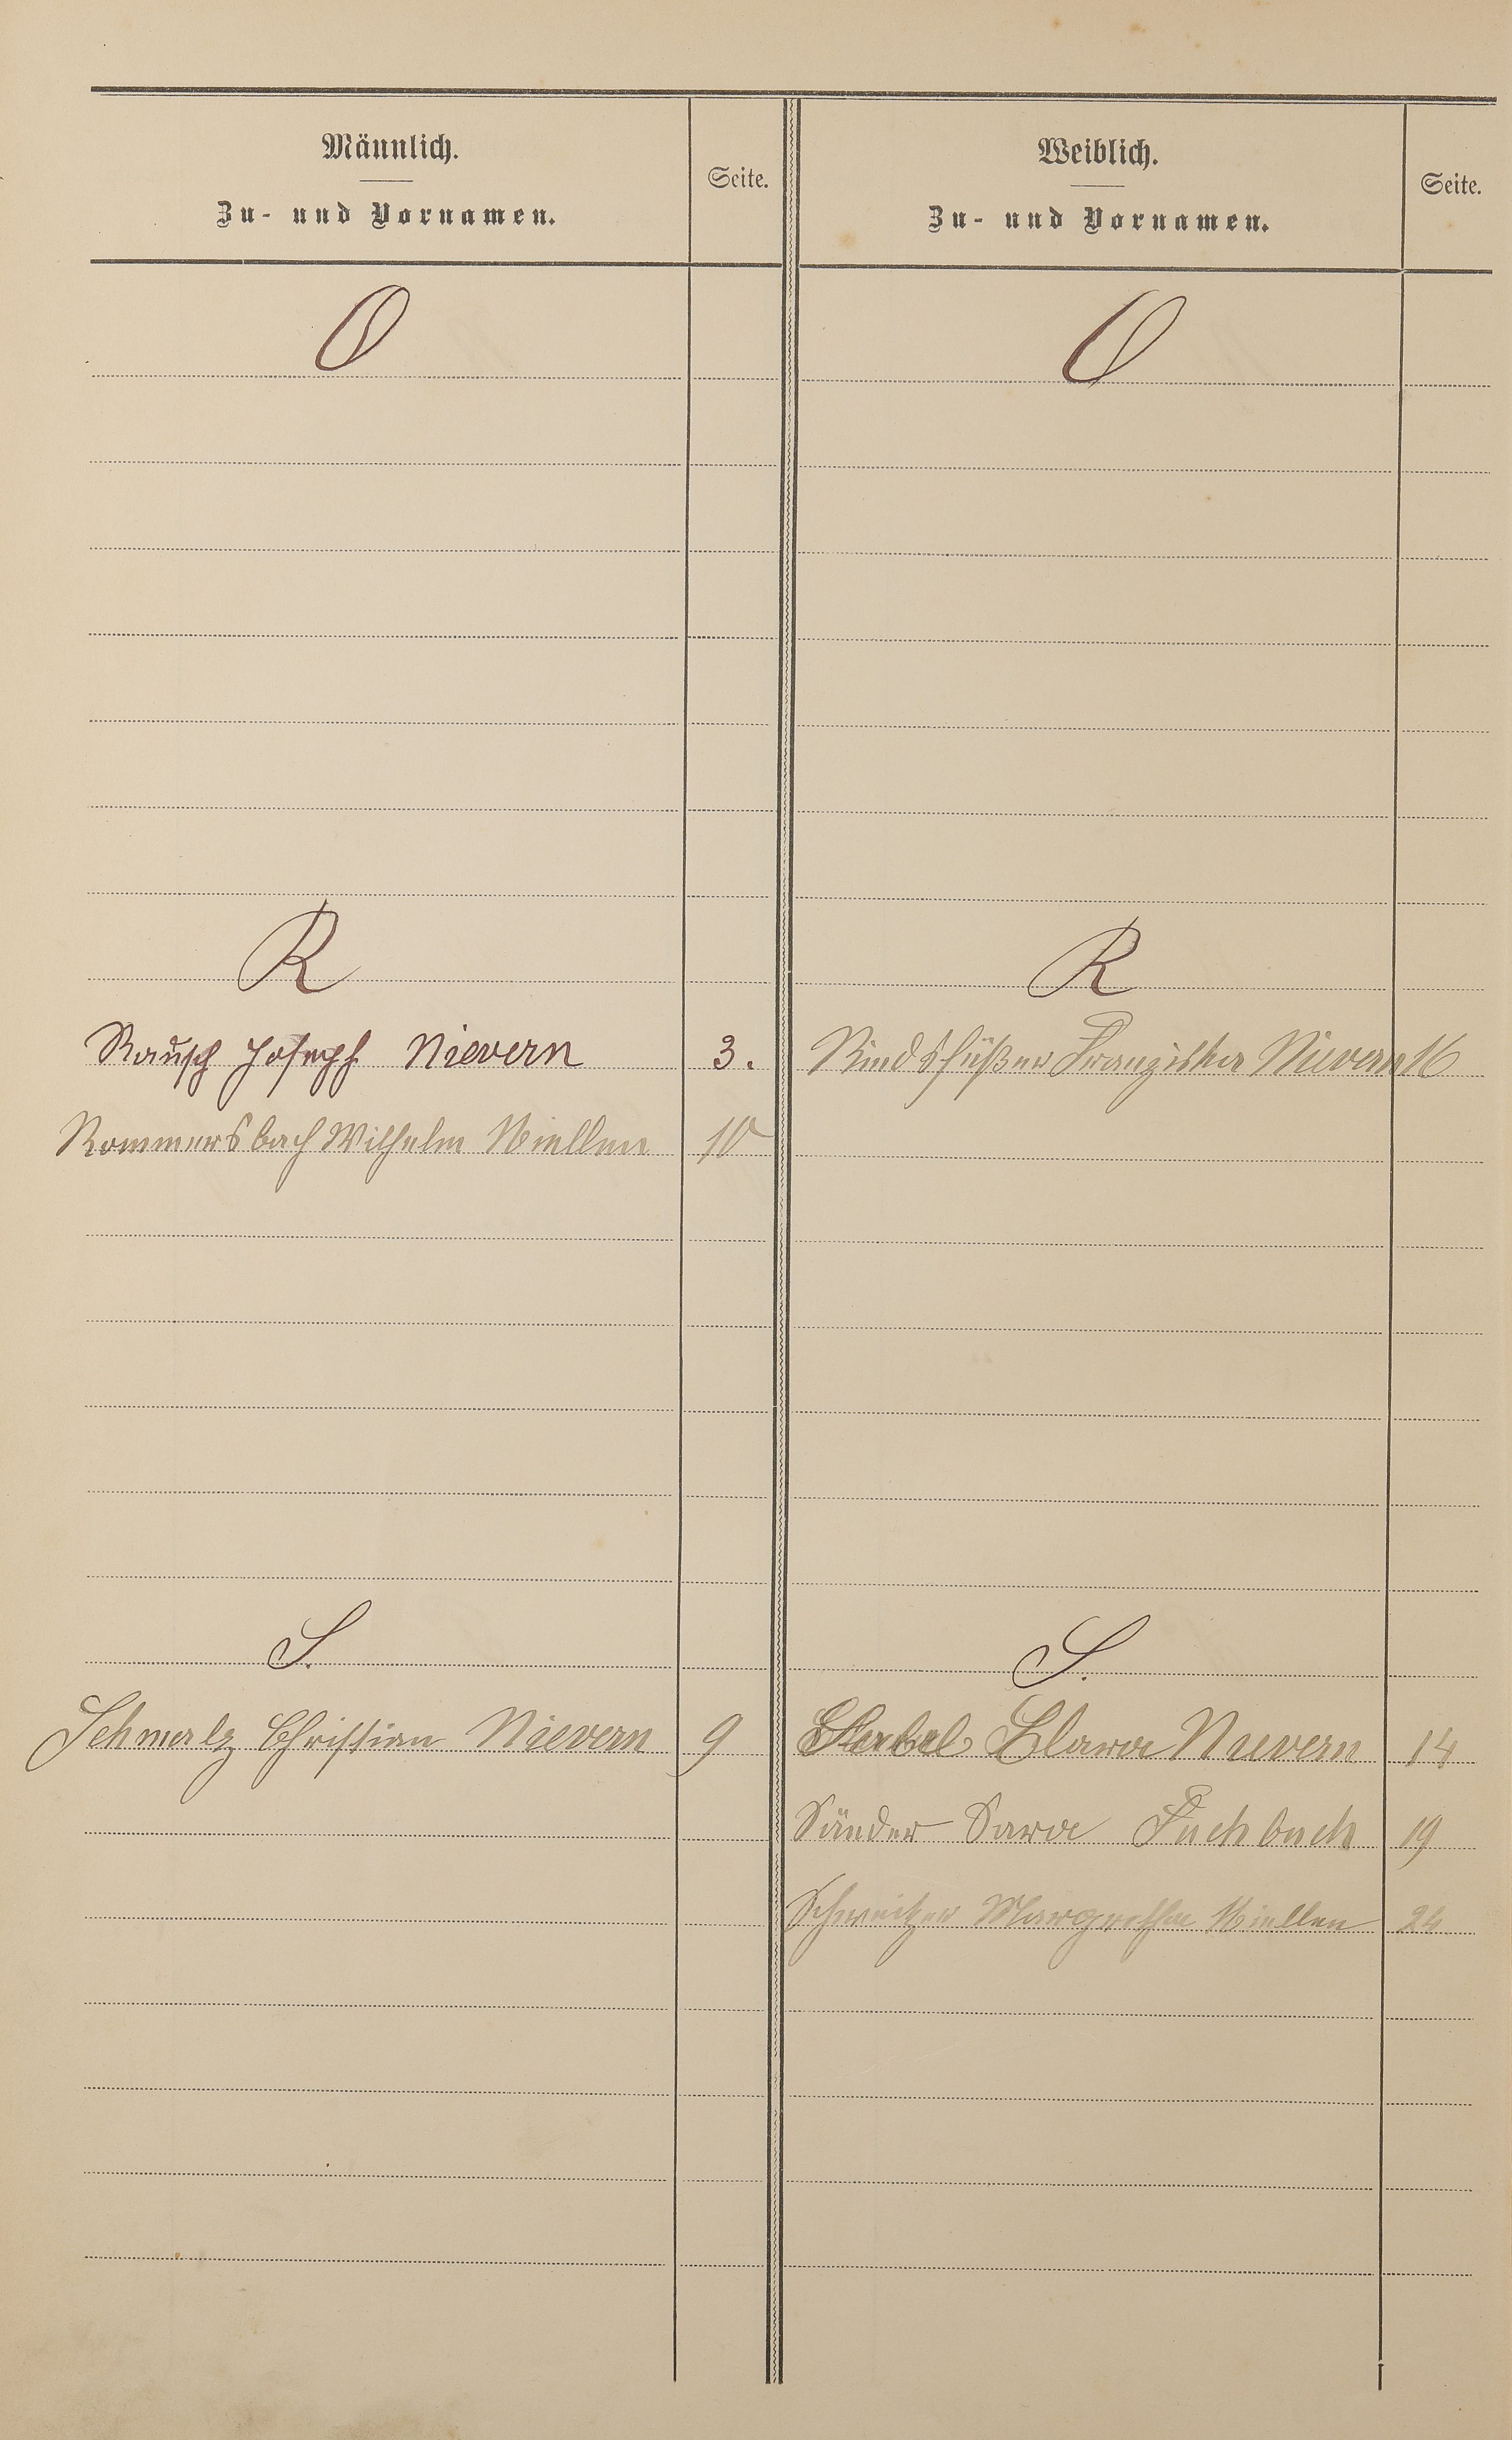 Männlich.
Zu- und Vornamen.
Seite.
Weiblich.
Zu- und Vornamen.
Seite.
O
O
R
R
Rausch Joseph Nievern 3.
Rindsfüßer Franziska Nievern 16
Rommersbach Wilhelm Miellen 10
S.
S.
Schmalz Christian Nievern 9
Clara Nievern 14
Sander Sara Fachbach 19
Schweitzer Margretha Miellen 24